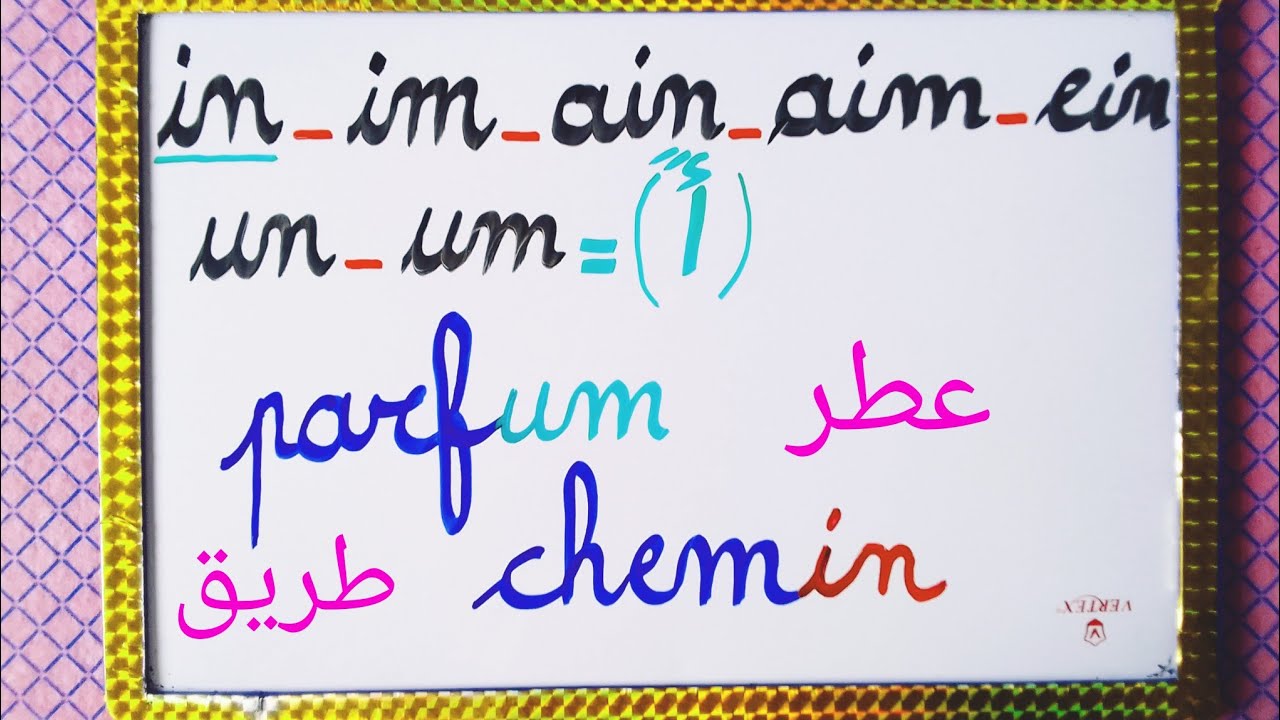 in - im - ain - aim - ein
un - um = (أً)
parfum عطر
طريق chemin
VERTEX